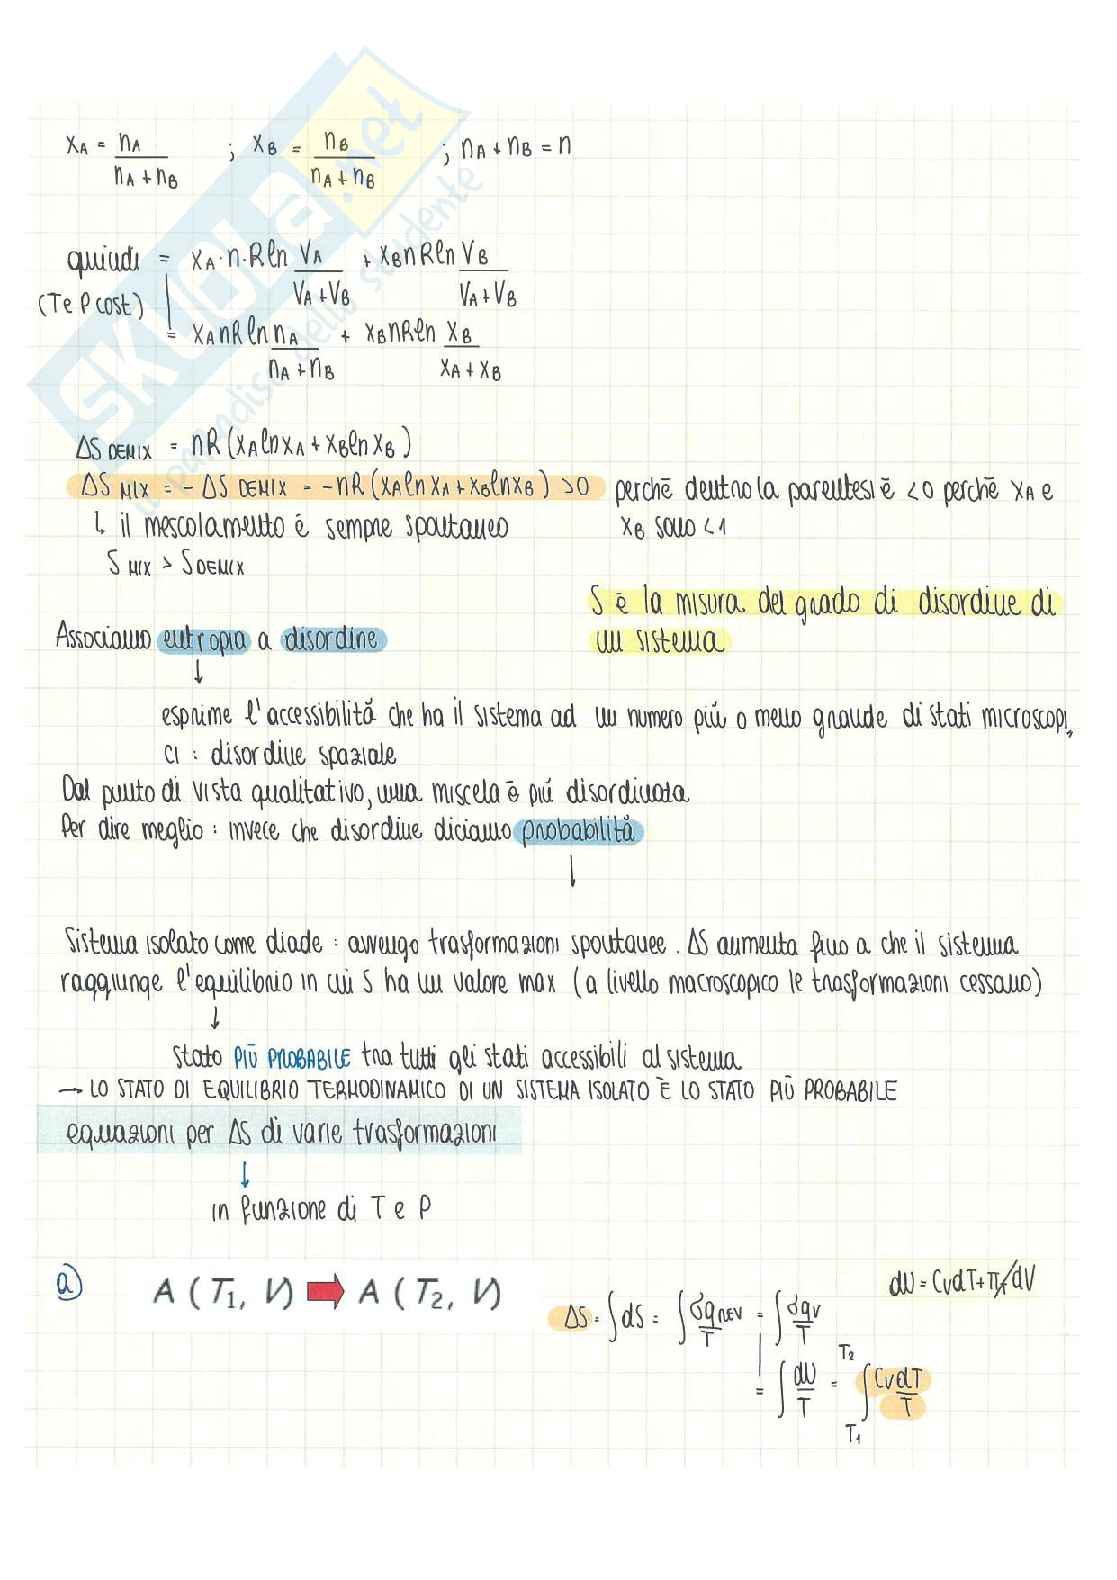 xA = nA / (nA + nB) ; xB = nB / (nA + nB) ; nA + nB = n
quindi = xA · n · R ln VA / (VA + VB) + xB n R ln VB / (VA + VB)
(T e P cost)
= xA n R ln nA / (nA + nB) + xB n R ln xB / (xA + xB)
ΔS DEMIX = nR (xA ln xA + xB ln xB)
ΔS MIX = - ΔS DEMIX = - nR (xA ln xA + xB ln xB) > 0 perché dentro la parentesi è < 0 perché xA e
↳ il mescolamento è sempre spontaneo xB sono < 1
S MIX > S DEMIX
S è la misura del grado di disordine di
un sistema
Associamo entropia a disordine
↓
esprime l'accessibilità che ha il sistema ad un numero più o meno grande di stati microscopi
ci : disordine spaziale
Dal punto di vista qualitativo, una miscela è più disordinata
Per dire meglio : invece che disordine diciamo probabilità
↓
Sistema isolato come diade : avvengo trasformazioni spontanee. ΔS aumenta fino a che il sistema
raggiunge l'equilibrio in cui S ha un valore max (a livello macroscopico le trasformazioni cessano)
↓
stato PIÙ PROBABILE tra tutti gli stati accessibili al sistema
→ LO STATO DI EQUILIBRIO TERMODINAMICO DI UN SISTEMA ISOLATO È LO STATO PIÙ PROBABILE
equazioni per ΔS di varie trasformazioni
↓
in funzione di T e P
a) A (T1, V) → A (T2, V)
dU = CvdT + πT dV
ΔS = ∫ dS = ∫ δqREV / T = ∫ δqV / T
= ∫ dU / T = ∫ T1 T2 CvdT / T
SKUOLA.net
il paradiso dello studente